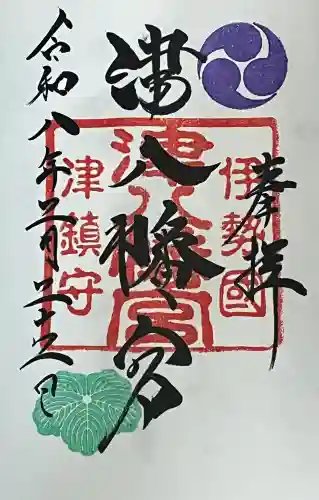 奉拝
伊勢國
津八幡宮
津八幡宮
津鎮守
令和八年二月二十五日